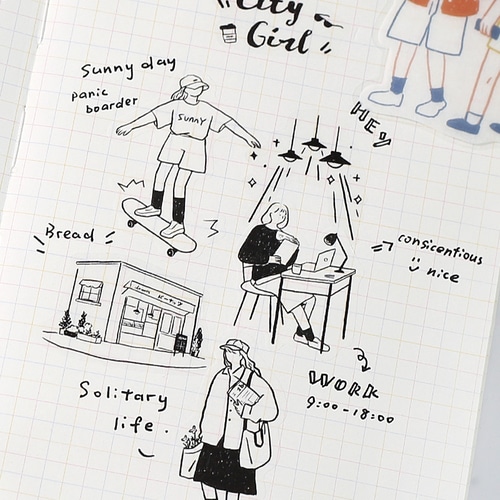 City
Girl
Sunny day
panic
boarder
SUNNY
HEY
Bread
consicentious
nice
WORK
9:00-18:00
Solitary
life.